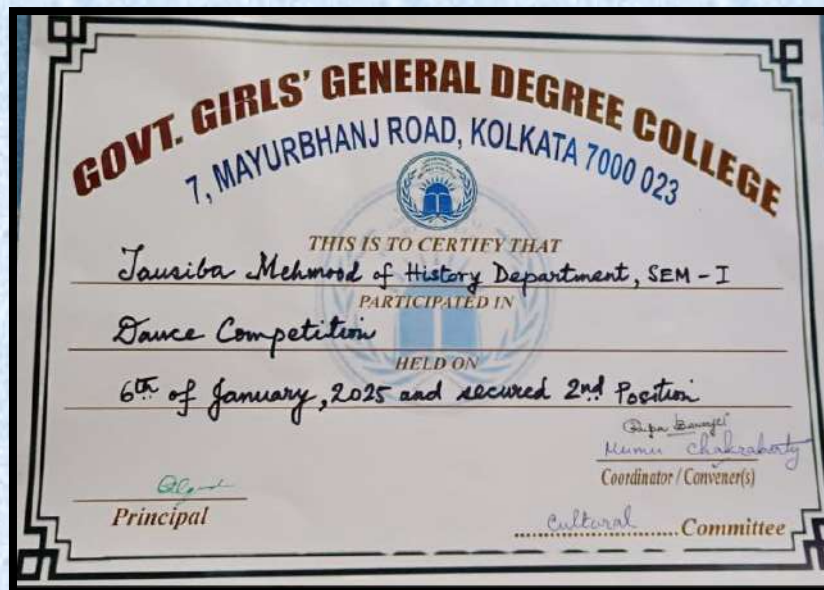 GOVT. GIRLS' GENERAL DEGREE COLLEGE
7, MAYURBHANJ ROAD, KOLKATA 7000 023
THIS IS TO CERTIFY THAT
Tausiba Mehmood of History Department, SEM - I
PARTICIPATED IN
Dance Competition
HELD ON
6th of January, 2025 and secured 2nd Position
Banerjee
Mumu Chakraborty
Coordinator / Convener(s)
Principal
Cultural Committee